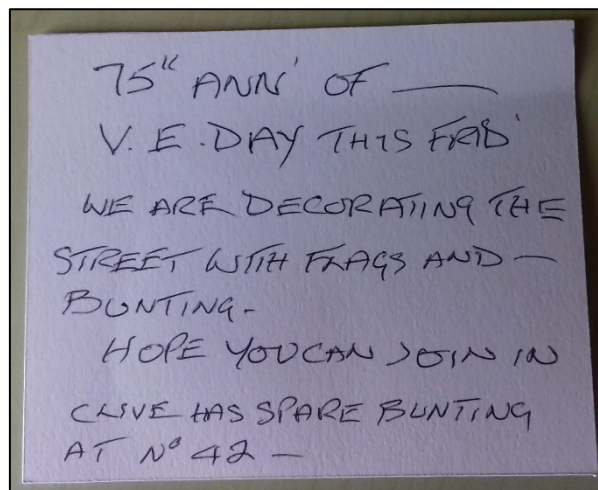 75" ANN' OF —
V. E. DAY THIS FRID'
WE ARE DECORATING THE
STREET WITH FLAGS AND —
BUNTING-
HOPE YOU CAN JOIN IN
CLIVE HAS SPARE BUNTING
AT Nº 42 —